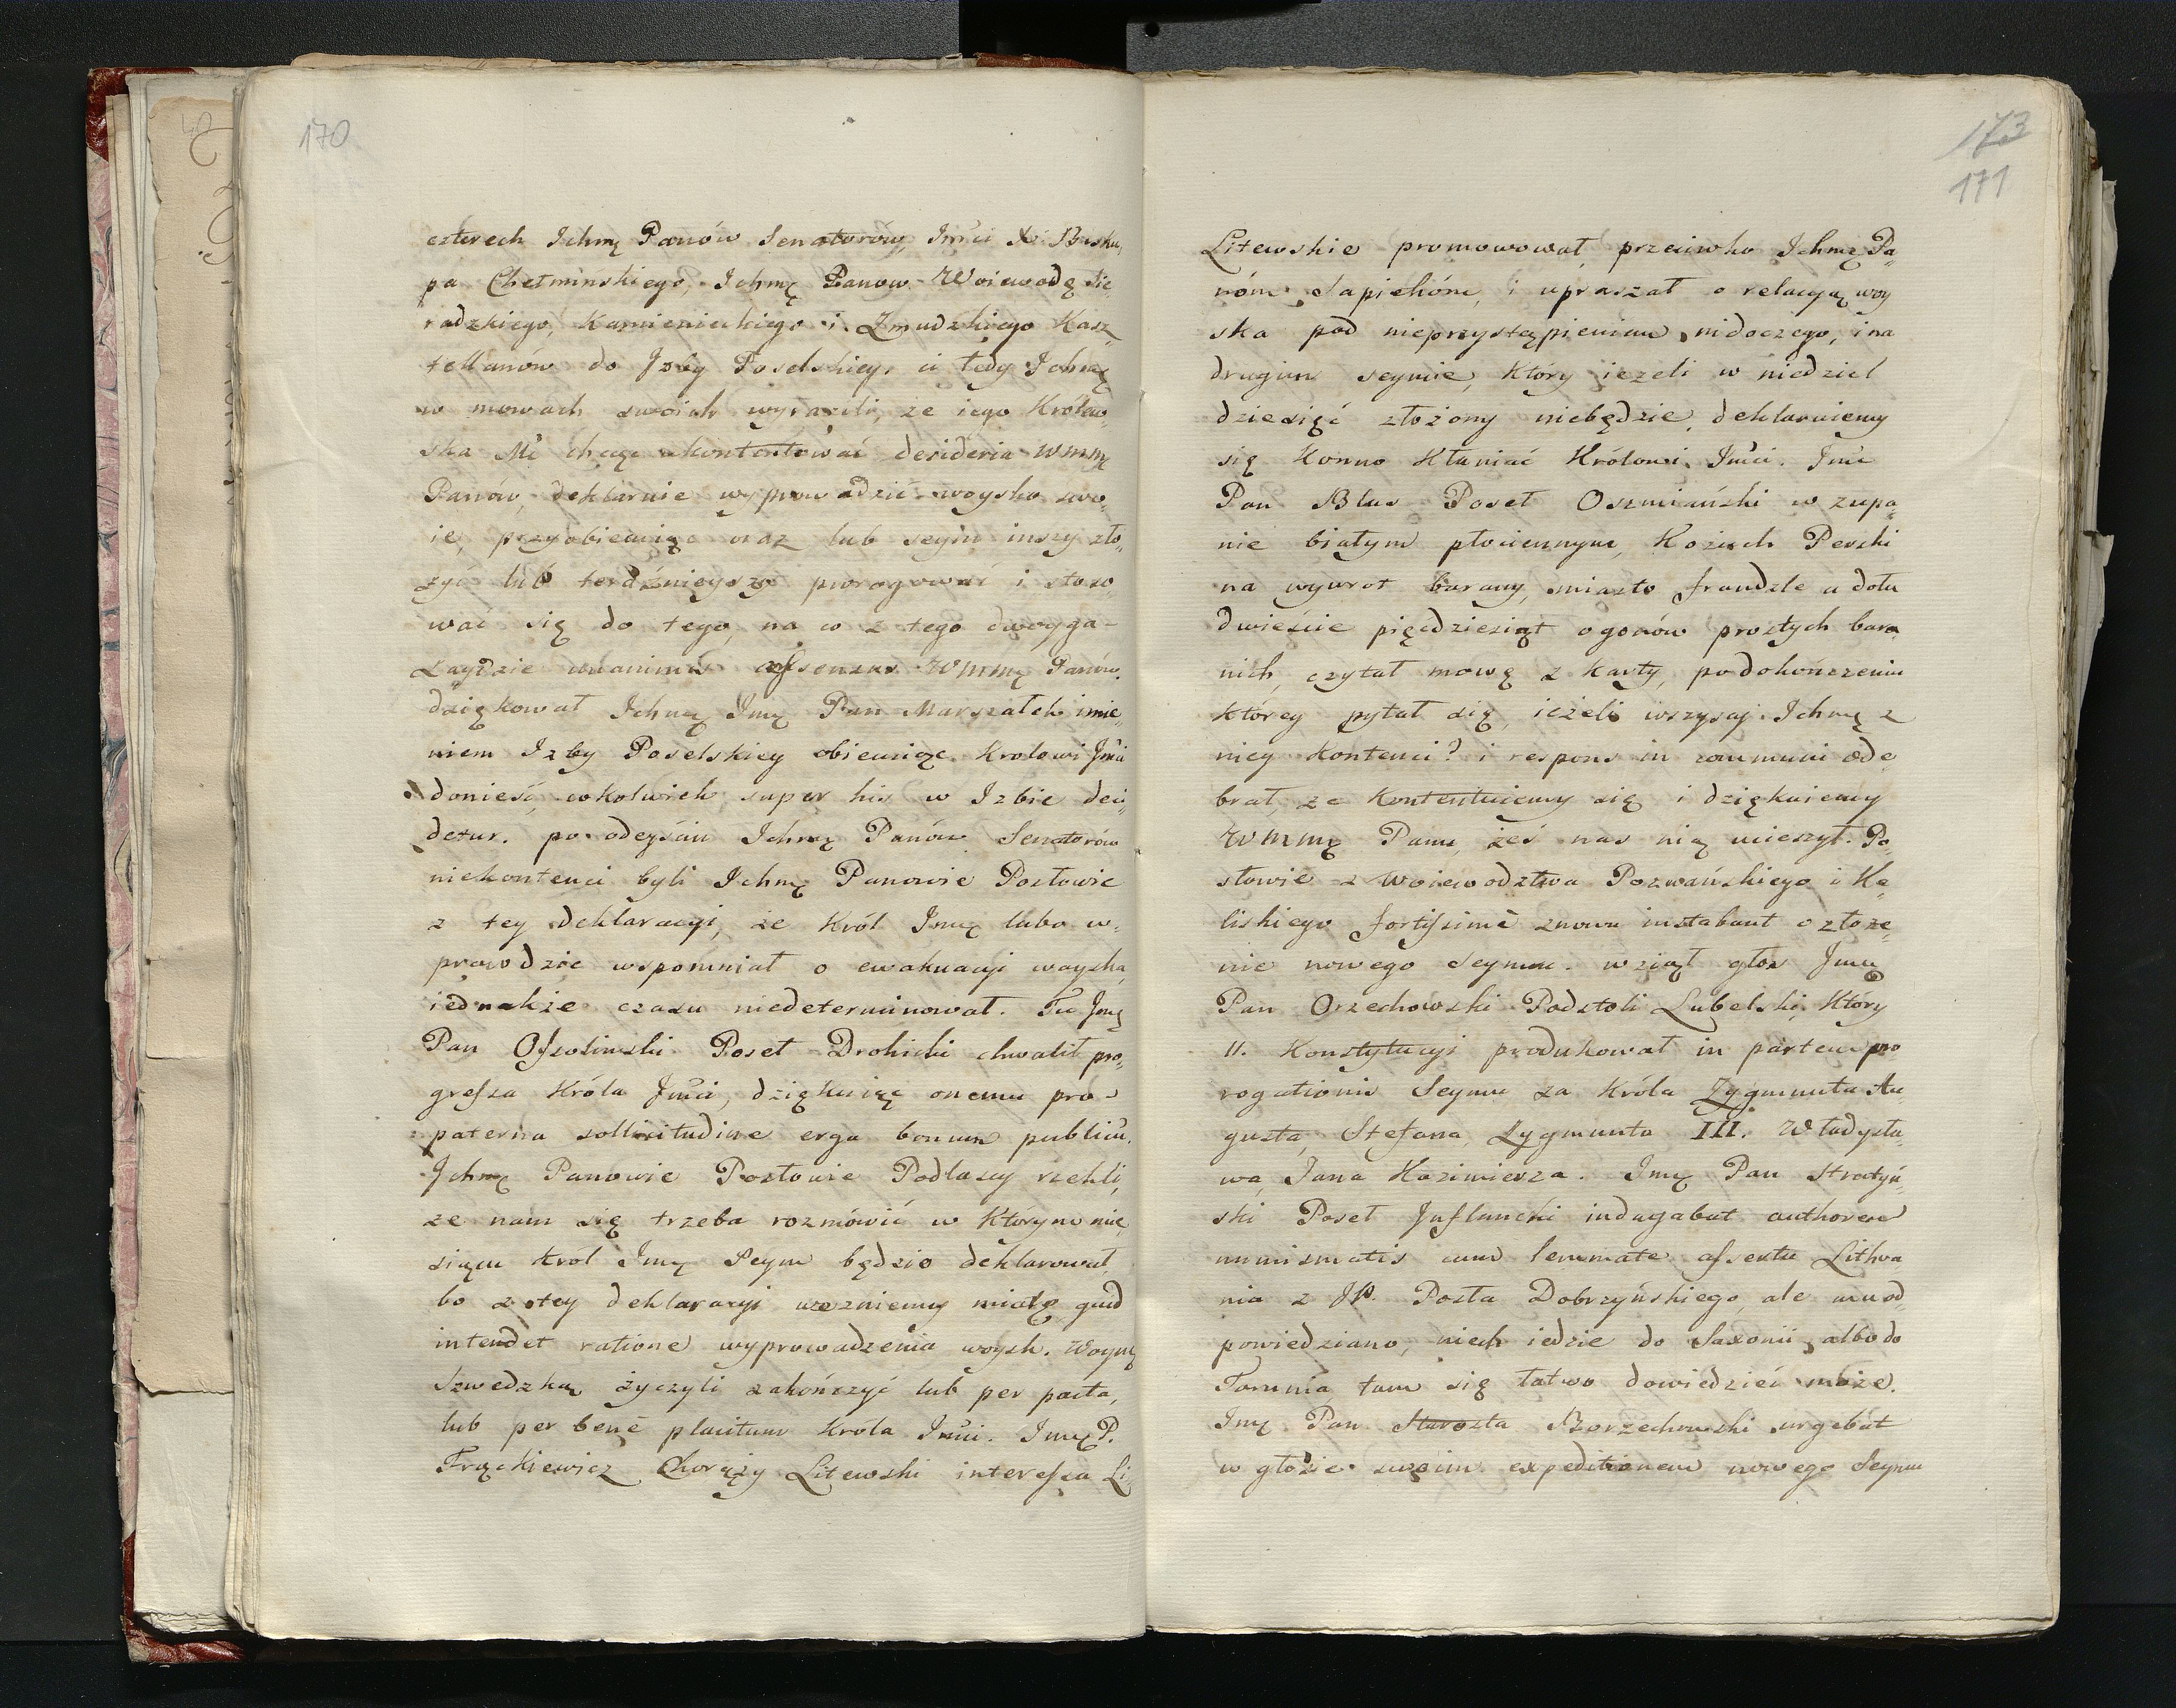 170
czterech Ichmę Panów Senatorów, Imci X: Bisku,
pa Chełmińskiego, Ichmę Panow Woiewodę Sie,
radzkiego, Kamienieckiego i. Zmudzkiego Kasz,
tellanów do Jzby Poselskiey, ci tedy Ichmę
w mowach swoich wyrazili, ze iego Królew,
ska Mć chcąc ukontentować desideria Wmmę
Panów, deklaruie wyprowadzić woysko swo,
ie, przyobiecuiąc oraz lub seym inszy zło,
zyć lub terażnieyszy prorogować i stoso,
wać się do tego, na co z tego dwoyga-
zaydzie unanimis assensus Wmmę Panów.
dziękował Ichmę Imę Pan Marszałek imie,
niem Izby Poselskiey obiecuiąc Krolowi Jmci
donieść, cokolwiek super his w Izbie deci,
detur. po odeyściu Ichmę Panów Senatorów
niekontenci byli Ichmę Panowie Posłowie
z tey deklaracyi, że Król Imę lubo w,
prawdzie wspomniał o ewakuacyi woyska,
iednakże czasu niedeterminował. Tu Jmę
Pan Ossoliński Poseł Drohicki chwalił pro,
gressa Króla Jmci, dziękuiąc onemu pro
paterna sollicitudine erga bonum publicu.
Ichmę Panowie Posłowie Podlascy rzekli,
ze nam się trzeba rozmówić w którym mie,
siącu Król Imę Seym będzie deklarował
bo z tey deklaracyi weźniemy miarę quid
intendet ratione wyprowadzenia woysk. Woynę
Szwedzką życzyli zakończyć lub per pacta,
lub per benè placitum Króla Imci. Imę P.
Frąckiewicz Chorąży Litewski interessa Li,
173
171
Litewskie promowował przeciwko Ichmę Pa,
nóm Sapiehóm, i upraszał o relacyą woy
ska pod nieprzystąpieniem nidoczego, i na
drugim seymie, który ieżeli w niedziel
dziesięć złożony niebędzie, deklaruiemy
się konno kłaniać Królowi Imci. Imć
Pan Blus Poseł Oszmiański w zupa,
nie białym płociennym, Kożuch Perski
na wywrot barany, miasto frandzle u dołu
dwieście pięćdziesiąt ogonów prostych bara,
nich, czytał mowę z karty, podokończeniu
którey pytał się, ieżeli wszyscy Ichmę z
niey kontenci? i respons in communi ode,
brał, ze kontentuiemy się i dziękuiemy
Wmmę Panu, żeś nas nią ucieszył. Po,
słowie z Woiewodztwa Poznańskiego i Ka,
liskiego fortissimè znowu instabant o złoże,
nie nowego Seymu. wziął głos Jmę
Pan Orzechowski Podstoli Lubelski, który
11. Konstytucyi produkował in partem pro
rogationis Seymu za Króla Zygmunta Au
gusta, Stefana, Zygmunta III. Władysła,
wa, Jana Kazimierza. Imę Pan Stratyń,
ski Poseł Inflancki indagabat authorem
numismatis cum lemmate assertu Lithva
nia z JP. Posła Dobrzyńskiego, ale mu od,
powiedziano, niech iedzie do Saxonii, albo do
Torunia tam się łatwo dowiedzieć może.
Imę Pan Starosta Borzechowski urgebat
w głosie swoim expeditionem nowego Seymu